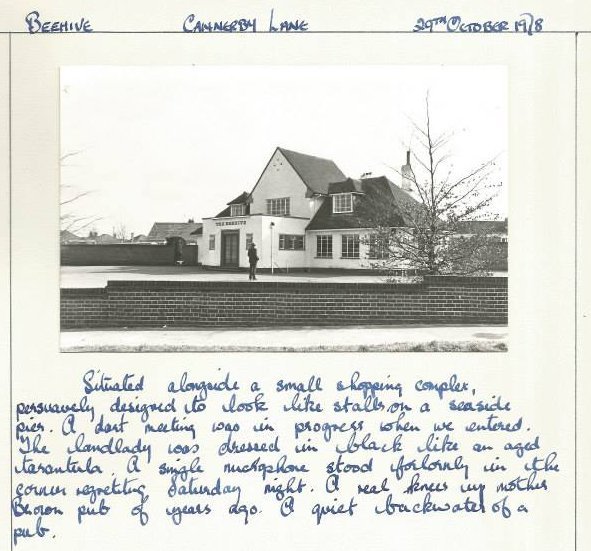 BEEHIVE CANNERBY LANE 29TH OCTOBER 1978
THE BEEHIVE
Situated alongside a small shopping complex,
persuavely designed to look like stalls on a seaside
pier. A dart meeting was in progress when we entered.
The landlady was dressed in black like an aged
tarantula. A single microphone stood forlornly in the
corner regretting Saturday night. A real knees up mother
Brown pub of years ago. A quiet backwater of a
pub.